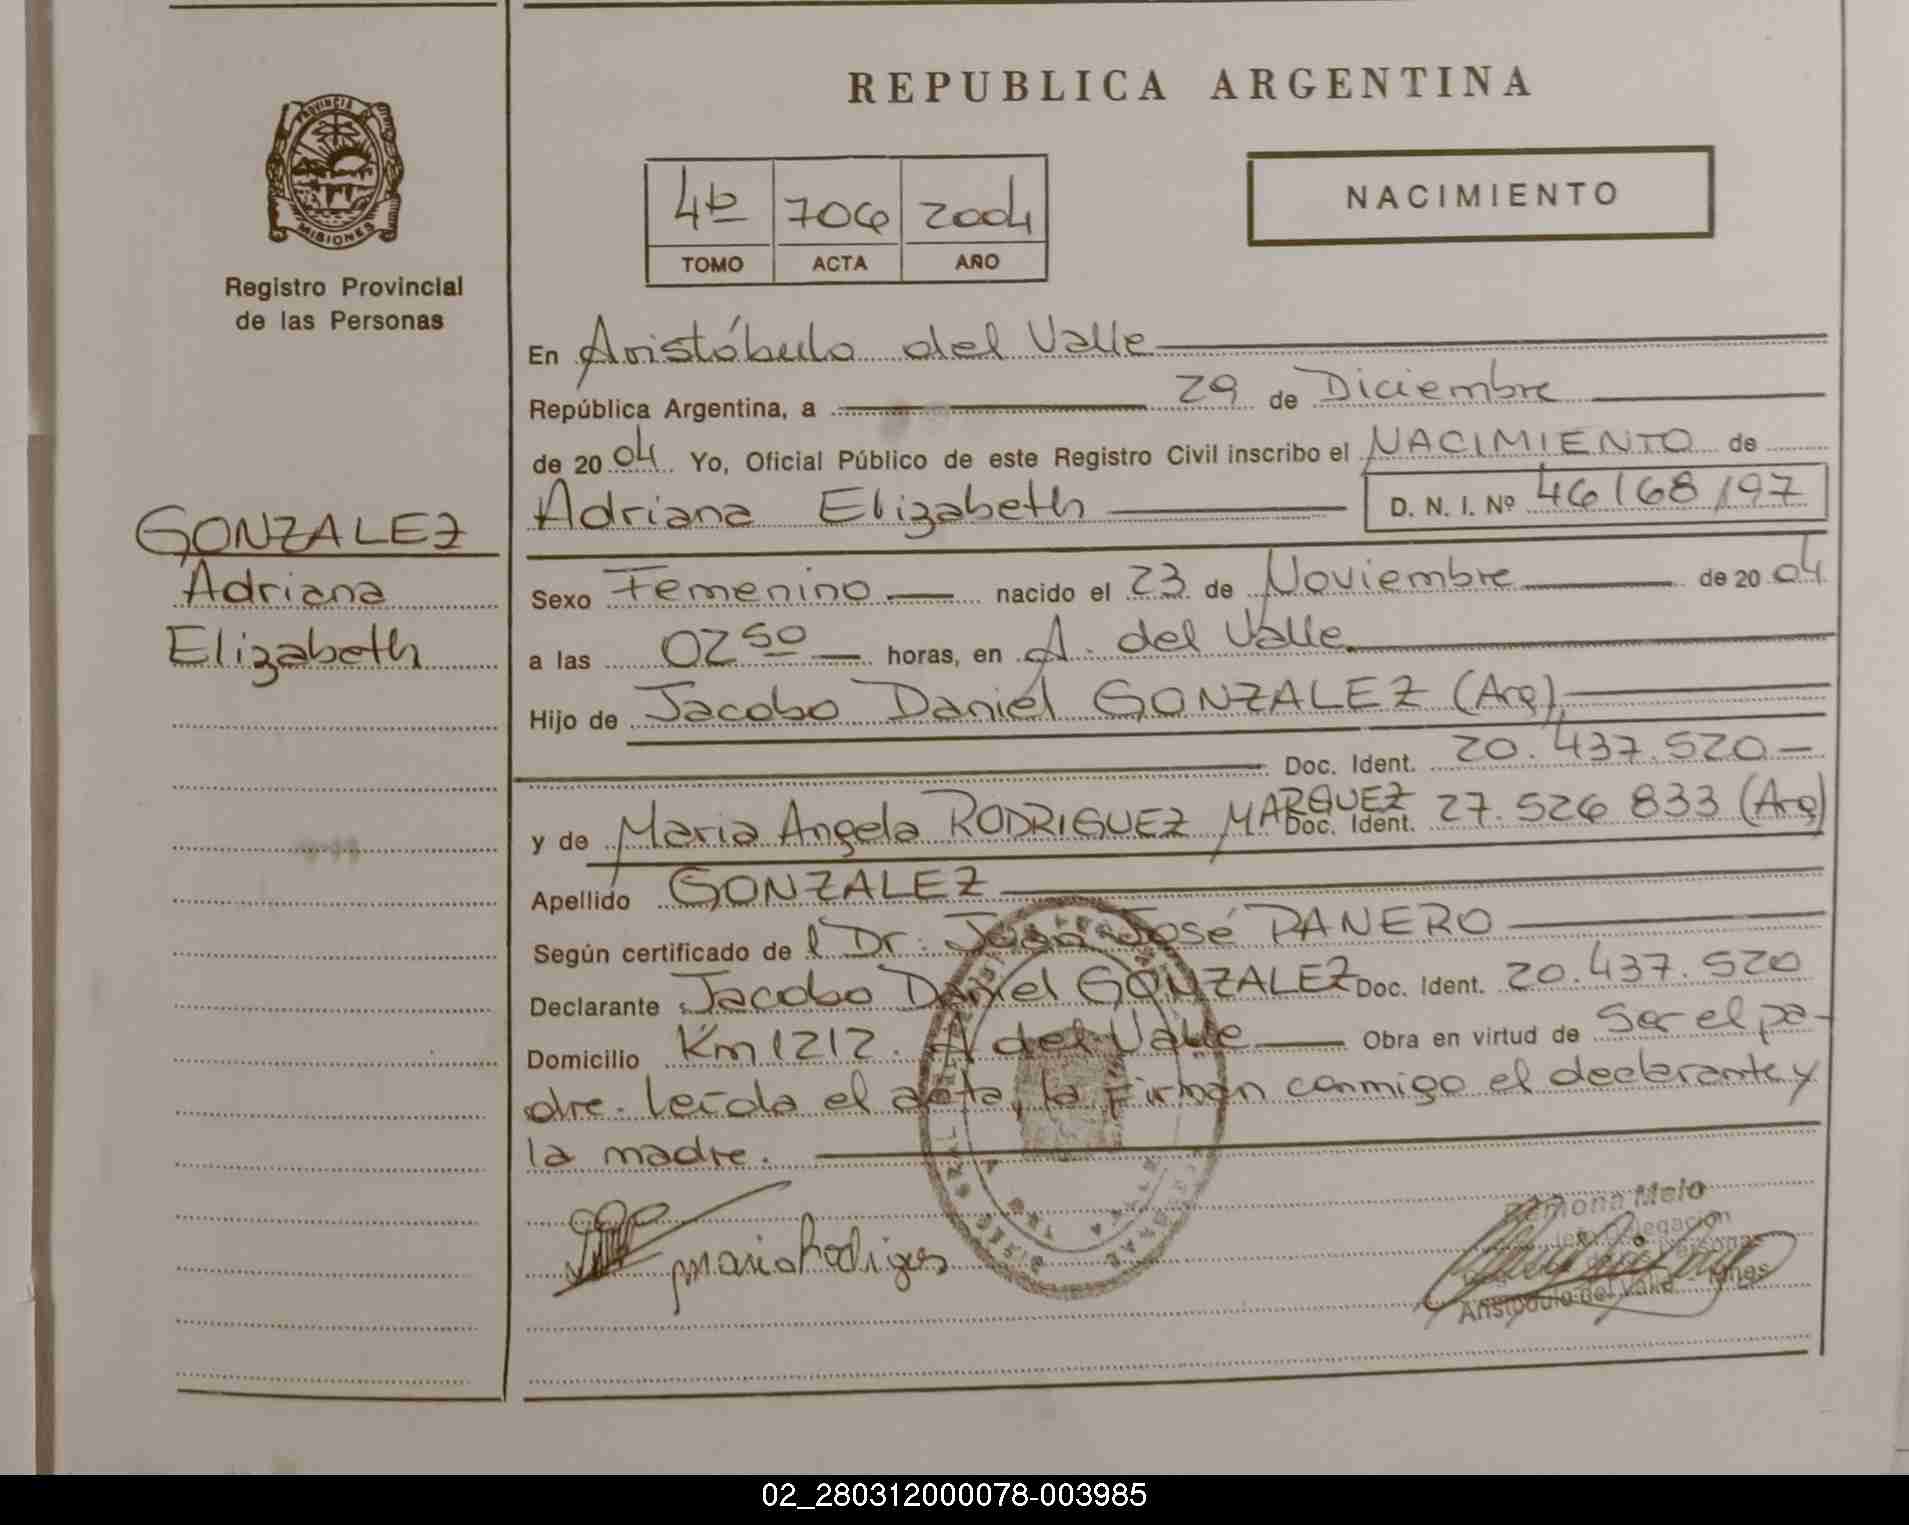 REPUBLICA ARGENTINA
PROVINCIA
MISIONES
Registro Provincial
de las Personas
4to 706 2004
TOMO ACTA AÑO
NACIMIENTO
GONZALEZ
Adriana
Elizabeth
En Aristóbulo del Valle
República Argentina, a 29 de Diciembre
de 2004 Yo, Oficial Público de este Registro Civil inscribo el NACIMIENTO de
Adriana Elizabeth D. N. I. Nº 46168197
Sexo Femenino nacido el 23 de Noviembre de 2004
a las 02 50 horas, en A. del Valle
Hijo de Jacobo Daniel GONZALEZ (Arg)
Doc. Ident. 20.437.520
y de Maria Angela RODRIGUEZ MARQUEZ Doc. Ident. 27.526 833 (Arg)
Apellido GONZALEZ
Según certificado de l Dr. Juan José PANERO
Declarante Jacobo Daniel GONZALEZ Doc. Ident. 20.437.520
Domicilio Km 1212. A del Valle Obra en virtud de Ser el pa-
dre. Leída el acta, la Firman conmigo el declarante y
la madre.
Ramona Melo
Delegación
Personas
Aristóbulo del Valle - Mnes
02_280312000078-003985